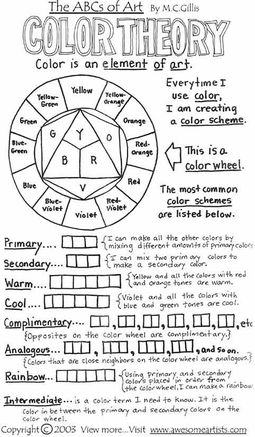 The ABCs of Art By M.C.Gillis
COLOR THEORY
Color is an element of art.
Everytime I
use color,
I am creating
a color scheme.
This is a
color wheel.
The most common
color schemes
are listed below.
Yellow
Yellow-Orange
Orange
Red-Orange
Red
Red-Violet
Violet
Blue-Violet
Blue
Blue-Green
Green
Yellow-Green
Y
O
R
V
B
G
Primary.... I can make all the other colors by
mixing different amounts of primary colors
Secondary.... I can mix two primary colors to
make a secondary color.
Warm.... Yellow and all the colors with red
and orange tones are warm.
Cool.... Violet and all the colors with
blue and green tones are cool.
Complimentary.... , , , , , etc
(Opposites on the color wheel are complimentary.)
Analogous... , , , and so on.
(Colors that are close neighbors on the color wheel are analogous.)
Rainbow... Using primary and secondary
colors placed in order from
the color wheel, I can make a rainbow.
Intermediate... is a color term I need to know. It is the
color in between the primary and secondary colors on the
color wheel.
Copyright © 2003 View more...Visit www.awesomeartists.com